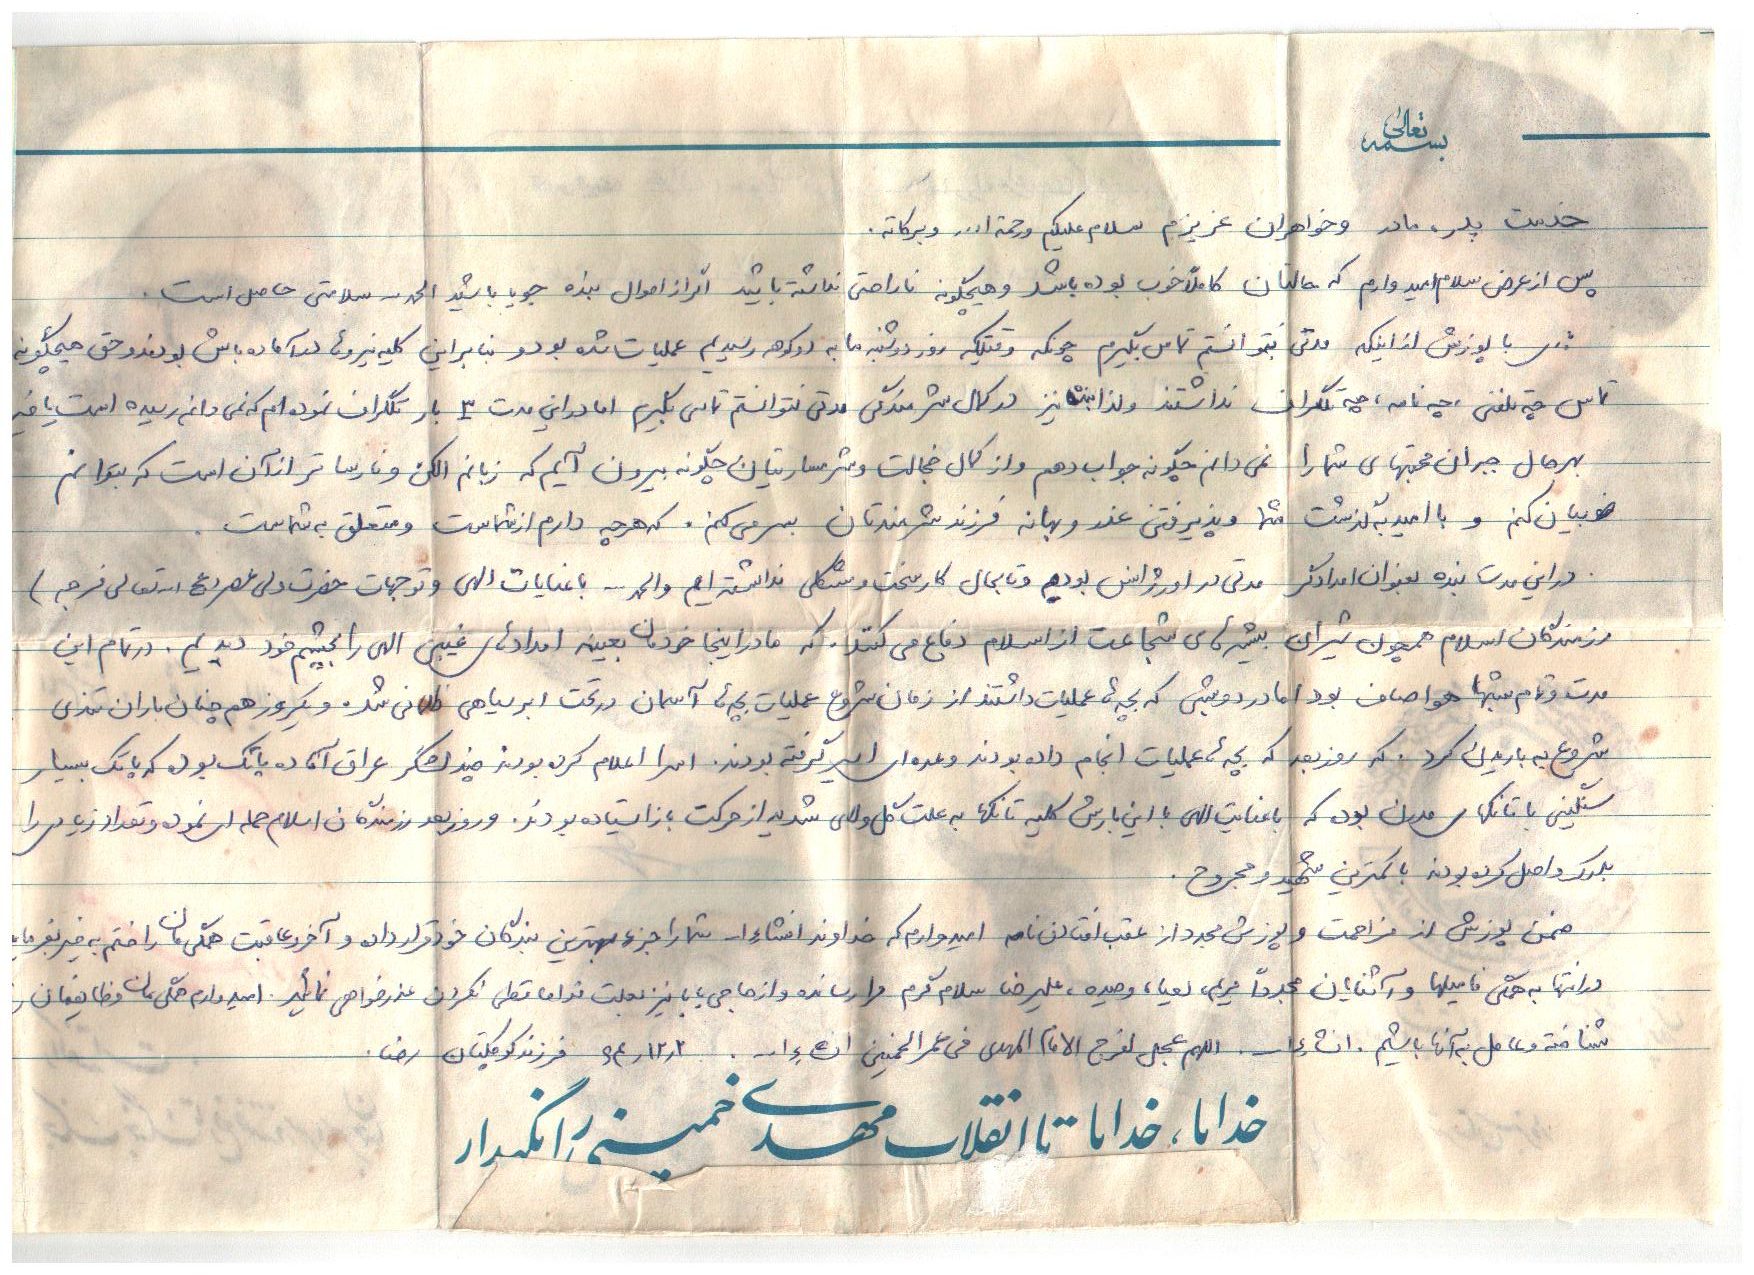 بسمه تعالی
خدمت پدر، مادر و خواهران عزیزم سلام علیکم و رحمة ا... و برکاته.
پس از عرض سلام امیدوارم که حالتان کاملاً خوب بوده باشد و هیچگونه ناراحتی نداشته باشید اگر از احوال بنده جویا باشید الحمد... سلامتی حاصل است.
با پوزش از اینکه مدتی نتوانستم تماس بگیرم چونکه وقتیکه روز دوشنبه ما به دوکوهه رسیدیم عملیات شده بود و بنابراین کلیه نیروها در آماده باش بودند و حق هیچگونه
تماس چه تلفنی، چه نامه، چه تلگراف نداشتند ولذا نیز در کمال شرمندگی مدتی نتوانستم تماس بگیرم اما در این مدت ۳ بار تلگراف نموده ام که نمی دانم رسیده است یا خیر
بهرحال جبران محبتهای شما را نمی دانم چگونه جواب دهم و از کمال خجالت و شرمساریتان چگونه بیرون آیم که زبانم الکن و نارساتر از آن است که بتوانم
بیان کنم و با امید به گذشت شما و پذیرفتن عذر و بهانه فرزند شرمندتان بسر می کنم. که هرچه دارم از شماست و متعلق به شماست.
در این مدت بنده بعنوان امدادگر مدتی در اورژانس بودیم و تابحال کار سخت و مشکلی نداشته ایم والحمد... با عنایات الهی و توجهات حضرت ولی عصر (عج ا... تعالی فرجه)
رزمندگان اسلام همچون شیران بیشه های شجاعت از اسلام دفاع می کنند. که ما در اینجا خودمان بعینه امدادهای غیبی الهی را بچشم خود دیدیم. در تمام این
مدت و تمام شبها هوا صاف بود اما در دو شبی که بچه ها عملیات داشتند از زمان شروع عملیات بچه ها آسمان در تحت ابر سیاهی شد. و یکروز هم چنان باران تندی
شروع به باریدن کرد. که روز بعد که بچه ها عملیات انجام داده بودند و عده ای اسیر گرفته بودند. اسرا اعلام کرده بودند چند لشگر عراق آماده پاتک بوده که پاتک بسیار
سنگینی با تانکهای مدرن بود که با عنایت الهی با این بارش کلیه تانکها به علت گل و لای شدید از حرکت باز ایستاده بودند. و روز بعد رزمندگان اسلام حمله ای نموده و تعداد زیادی را
بدرک واصل کرده بودند با کمترین شهید و مجروح.
ضمن پوزش از مزاحمت و پوزش مجدد از عقب افتادن نامه امیدوارم که خداوند انشاءا... شما را جزء بهترین بندگان خود قرار داده و آخر و عاقبت همگی مان را ختم به خیر بفرماید
در انتها به همگی فامیلها و آشنایان مجدداً مریم، رعیا، وحیده، علیرضا سلام گرم مرا رسانده و از حاجی بابا نیز بعلت خداحافظی نکردن عذرخواهی نمائید. امیدوارم همگی مان وظایفمان را
شناخته و عامل به آنها باشیم. انشاءا... اللهم عجل لفرج الامام المهدی فی عمر الخمینی انشاءا... . ۶۴/۱۲/۲ فرزند کوچکتان رضا.
خدایا، خدایا تا انقلاب مهدی خمینی را نگهدار